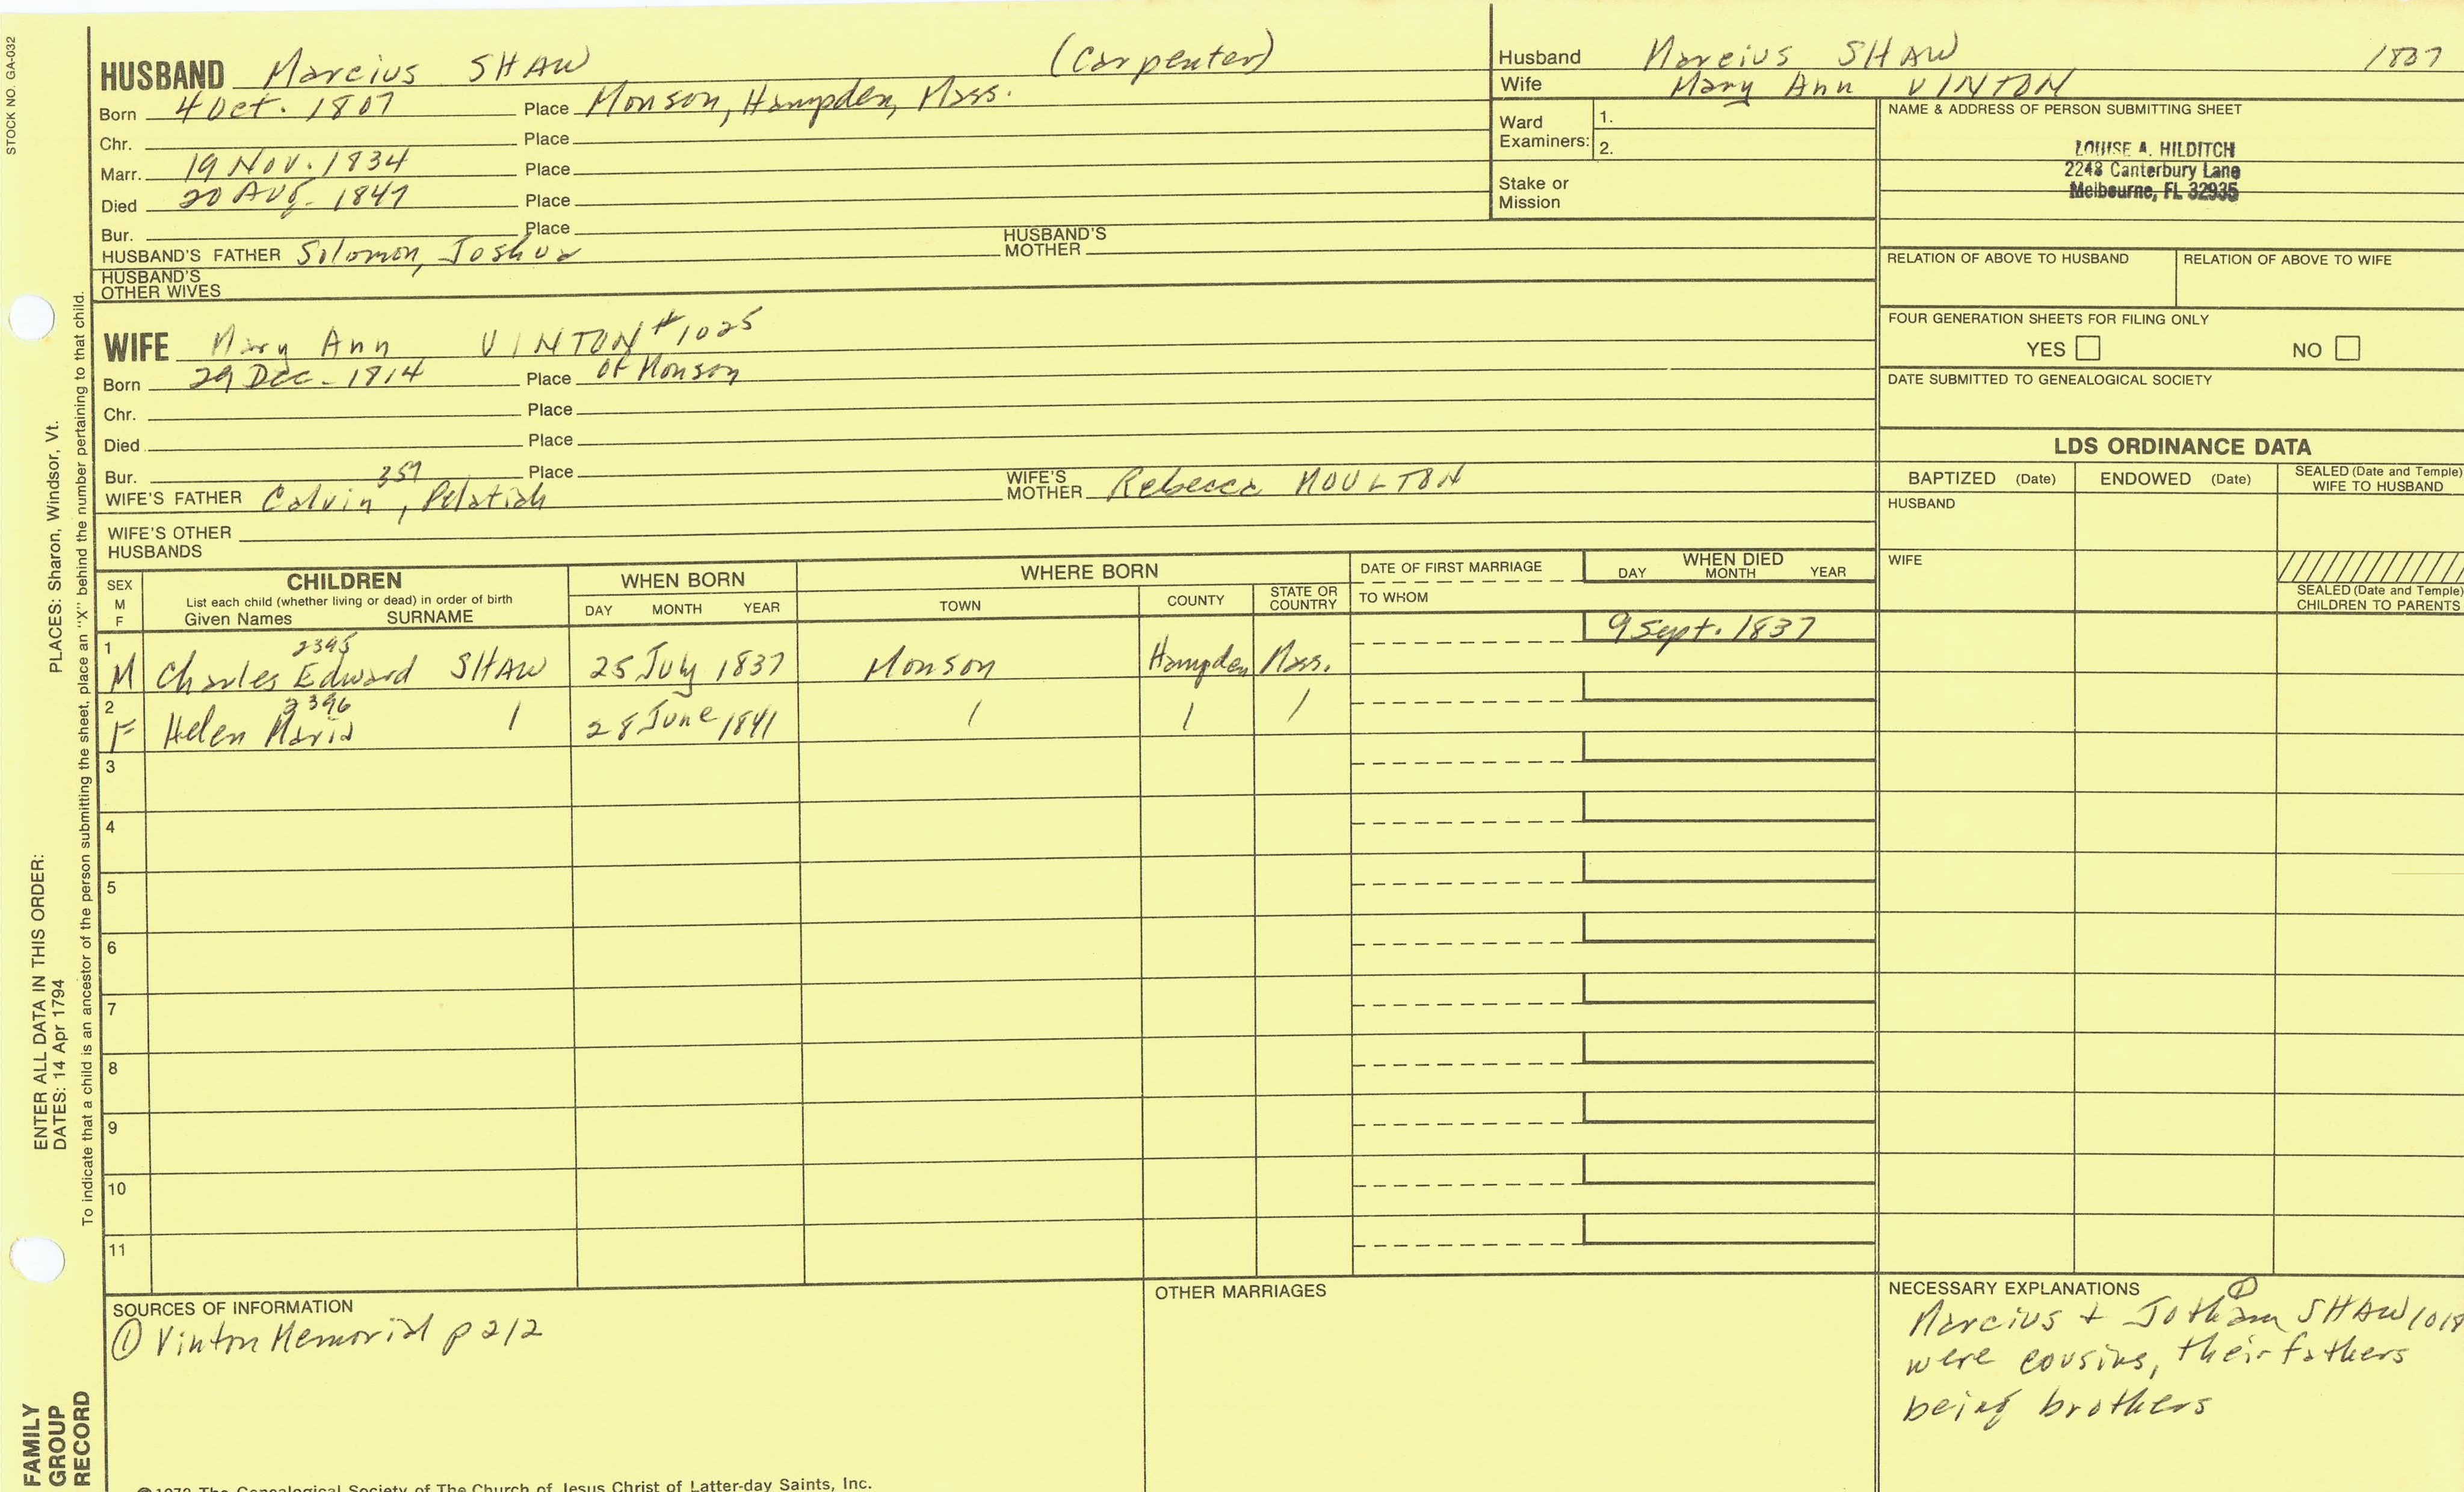 STOCK NO. GA-032
HUSBAND Marcius SHAW (Carpenter)
Born 4 Oct. 1807 Place Monson, Hampden, Mass.
Chr. Place
Marr. 19 Nov. 1834 Place
Died 20 Aug. 1847 Place
Bur. Place
HUSBAND'S FATHER Solomon, Joshua HUSBAND'S MOTHER
HUSBAND'S OTHER WIVES
WIFE Mary Ann VINTON #1025
Born 29 Dec. 1814 Place of Monson
Chr. Place
Died Place
Bur. Place
357
WIFE'S FATHER Calvin, Pelatiah WIFE'S MOTHER Rebecca MOULTON
WIFE'S OTHER HUSBANDS
Husband Marcius SHAW 1837
Wife Mary Ann VINTON
Ward Examiners: 1.
2.
Stake or Mission
NAME & ADDRESS OF PERSON SUBMITTING SHEET
LOUISE A. HILDITCH
2248 Canterbury Lane
Melbourne, FL 32935
RELATION OF ABOVE TO HUSBAND RELATION OF ABOVE TO WIFE
FOUR GENERATION SHEETS FOR FILING ONLY
YES NO
DATE SUBMITTED TO GENEALOGICAL SOCIETY
LDS ORDINANCE DATA
BAPTIZED (Date) ENDOWED (Date) SEALED (Date and Temple) WIFE TO HUSBAND
HUSBAND
WIFE
SEALED (Date and Temple) CHILDREN TO PARENTS
SEX M F CHILDREN WHEN BORN WHERE BORN DATE OF FIRST MARRIAGE WHEN DIED
List each child (whether living or dead) in order of birth
Given Names SURNAME DAY MONTH YEAR TOWN COUNTY STATE OR COUNTRY TO WHOM DAY MONTH YEAR
2395
1 M Charles Edward SHAW 25 July 1837 Monson Hampden Mass. 9 Sept. 1837
2396
2 F Helen Maria / 28 June 1841 / / /
3
4
5
6
7
8
9
10
11
SOURCES OF INFORMATION
① Vinton Memorial p 212
OTHER MARRIAGES
NECESSARY EXPLANATIONS ①
Marcius + Jotham SHAW
were cousins, their fathers
being brothers
PLACES: Sharon, Windsor, Vt.
ENTER ALL DATA IN THIS ORDER:
DATES: 14 Apr 1794
To indicate that a child is an ancestor of the person submitting the sheet, place an "X" behind the number pertaining to that child.
FAMILY
GROUP
RECORD
The Genealogical Society of The Church of Jesus Christ of Latter-day Saints, Inc.